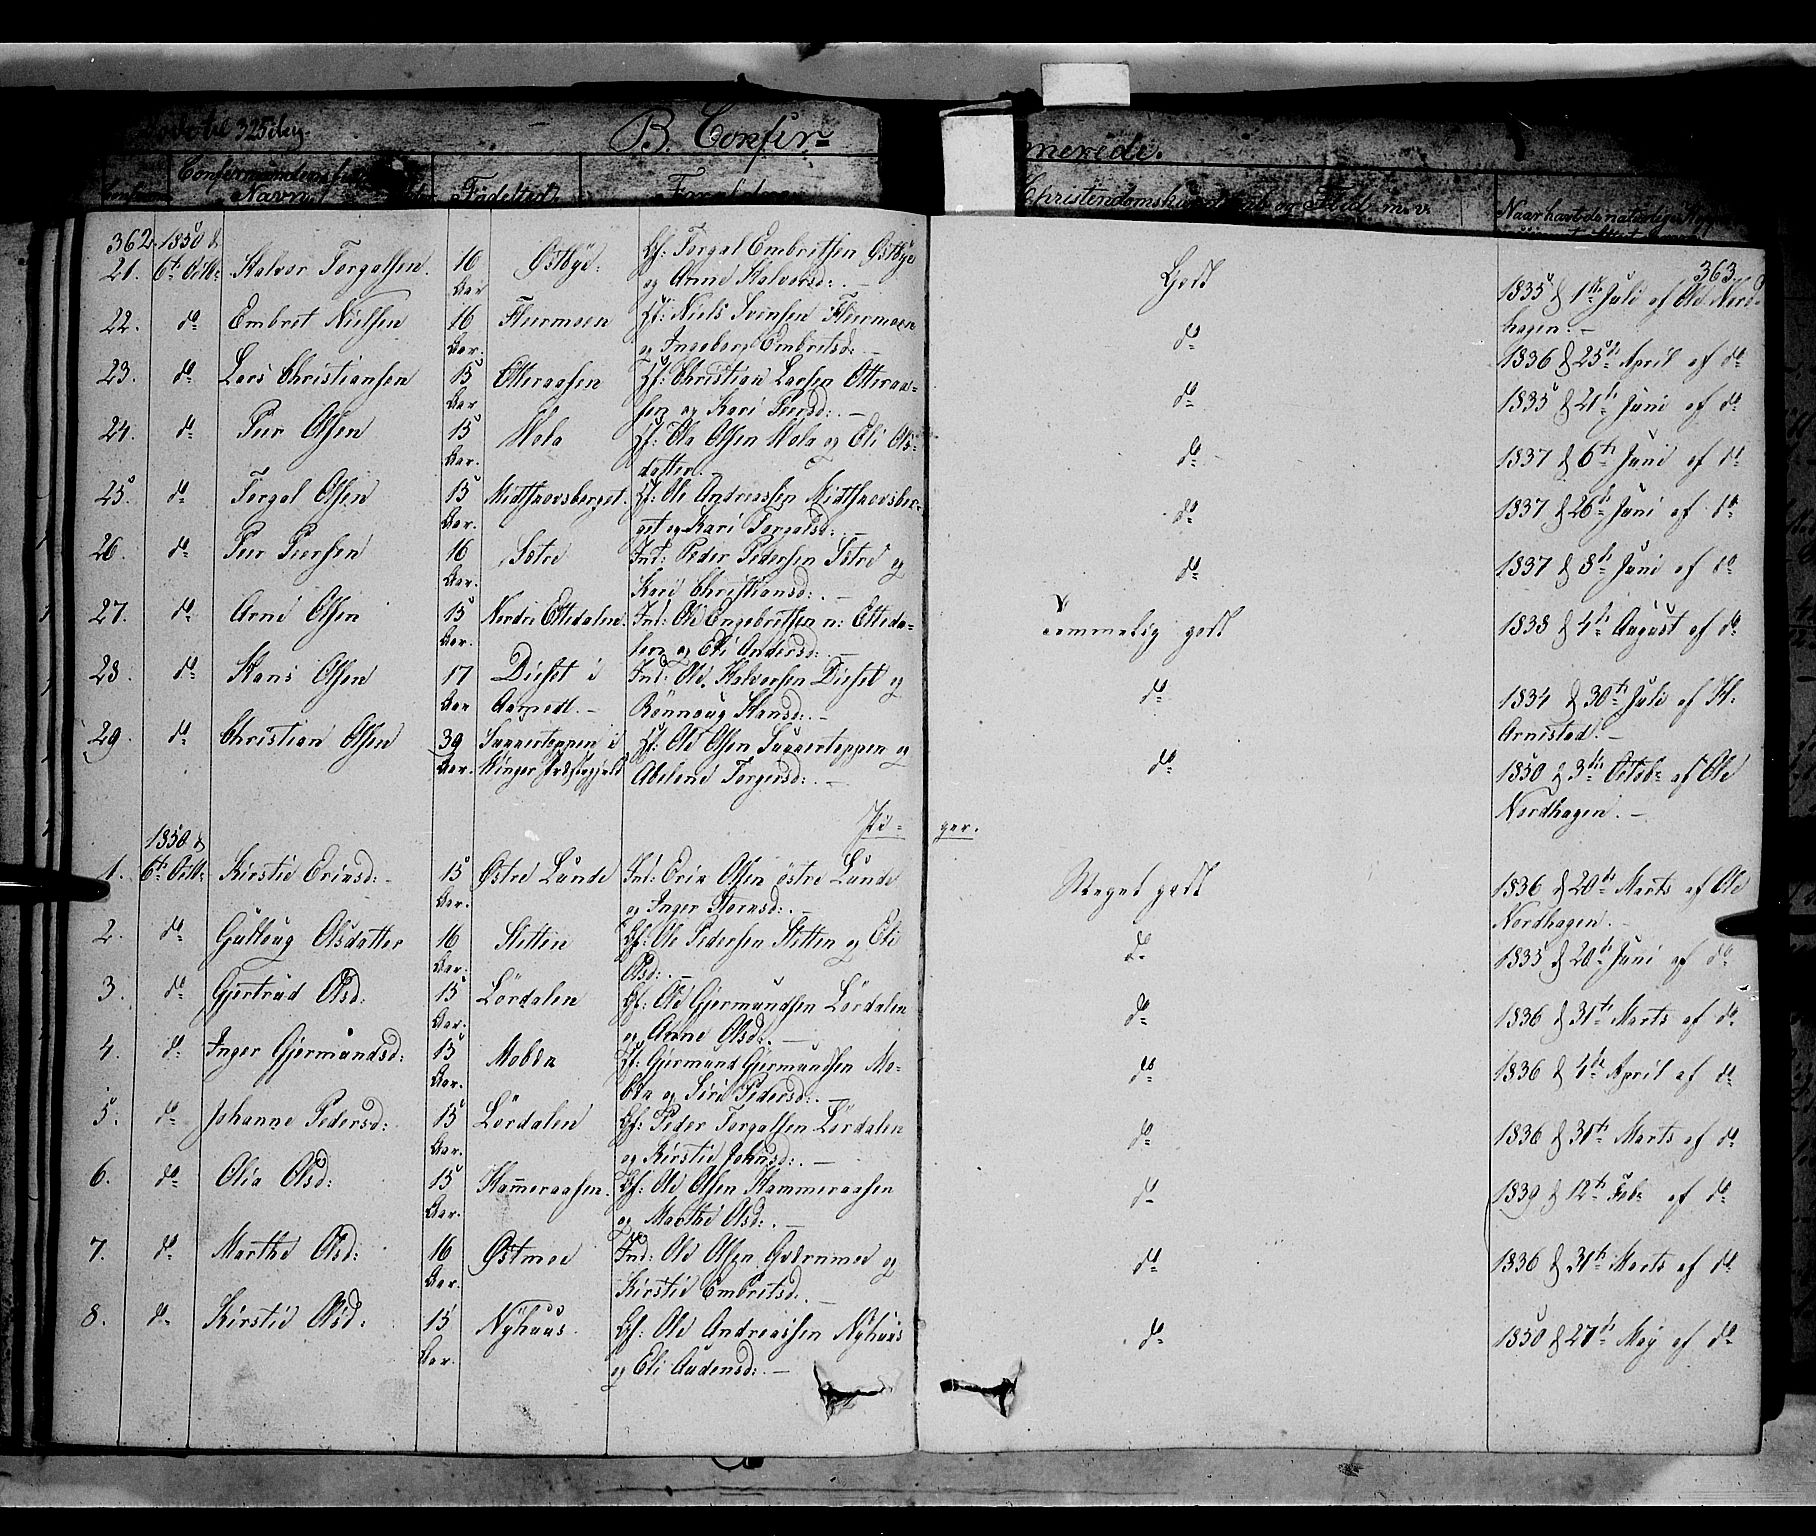 325
B. Confirmerede.
Confirmandens
Navn
Födested
Forældrene
Christendomskundskab og Flid m. v.
Naar havt de naturlige Kopper
362. 1850 d.
21. 6te Octb: Halvor Torgalsen. 16 Aar Östbye. Hf: Torgal Embretsen Östbye
og Arne Halvorsd: . — Godt 1835 d. 1te Juli af Ole Nord-
363.
hagen. —
22. do Embret Nielsen 16 Aar. Flermoen Hf: Niels Svensen Flermoen
og Ingeborg Embretsd: . — do 1836 d. 25de April af do
23. do Lars Christiansen 15 Aar Otteraasen Hf: Christian Larsen Otteraa-
sen og Kari Peersd: . — do 1835 d. 21de Juni af do
24. do Peer Olsen 15 Aar. Hola Hf: Ole Olsen Hola og Eli Ols-
datter. — do 1837 d. 6te Juni af do
25. do Torgal Olsen 15 Aar. Midtskovsberget. Hf: Ole Andreassen Midtskovsber-
get og Kari Torgalsd: . do 1837 d. 26de Juni af do
26. do Peer Peersen 16 Aar. Sætre Ind: Peder Pedersen Sætre og
Kari Christiansd: . — do 1837 d. 8de Juni af do
27. do Arne Olsen 15 Aar. Nordre Ettedalen. Ind: Ole Engebretsen n: Etteda-
len og Eli Andersd: . — temmelig godt 1838 d. 4de August af do
28. do Hans Olsen 17 Aar Diset i
Aamodt. — Ind: Ole Halvorsen Diset og
Rönnoug Hansd: . — do 1834 d. 30te Juli af H.
Arnestad. —
29. do Christian Olsen 39 Aar. Suggertoppen i
Vinger Præstegjeld Hf: Ole Olsen Suggertoppen og
Abelone Torgersd: . — do 1850 d. 3die Octob: af Ole
Nordhagen. —
Pi- ger.
1850 d.
1. 6te Octb: Kirstie Ericsd: 15 Aar. Østre Lunde Ind: Eric Olsen östre Lunde
og Inger Björnsd: . — Meget godt 1836 d. 20de Marts af Ole
Nordhagen. —
2. do Gulloug Olsdatter 16 Aar. Sletten Hf: Ole Pedersen Sletten og Eli
Olsd: . — do 1835 d. 20de Juni af do
3. do Gjertrud Olsd: 15 Aar. Lördalen Hf: Ole Gjermundsen Lördalen
og Anne Olsd: . — do 1836 d. 31te Marts af do
4. do Inger Gjermundsd: 15 Aar. Hf: Gjermund Gjermundsen
og Siri Pedersd: . — do 1836 d. 4de April af do
5. do Johanne Pedersd: 15 Aar. Lördalen Hf: Peder Torgalsen Lördalen
og Kirstie Johnsd: . — do 1836 d. 31te Marts af do
6. do Olia Olsd: 15 Aar. Hammeraasen. Hf: Ole Olsen Hammeraasen
og Marthe Olsd: . — do 1839 d. 12te Feb: af do
7. do Marthe Olsd: 16 Aar. Östmoe Ind: Ole Olsen Qværnmoe og
Kirstie Embretsd: . do 1836 d. 31te Marts af do
8. do Kirstie Olsd: 15 Aar. Nyhuus Hf: Ole Andreassen Nyhuus
og Eli Audensd: . — do 1850 d. 27de May af do